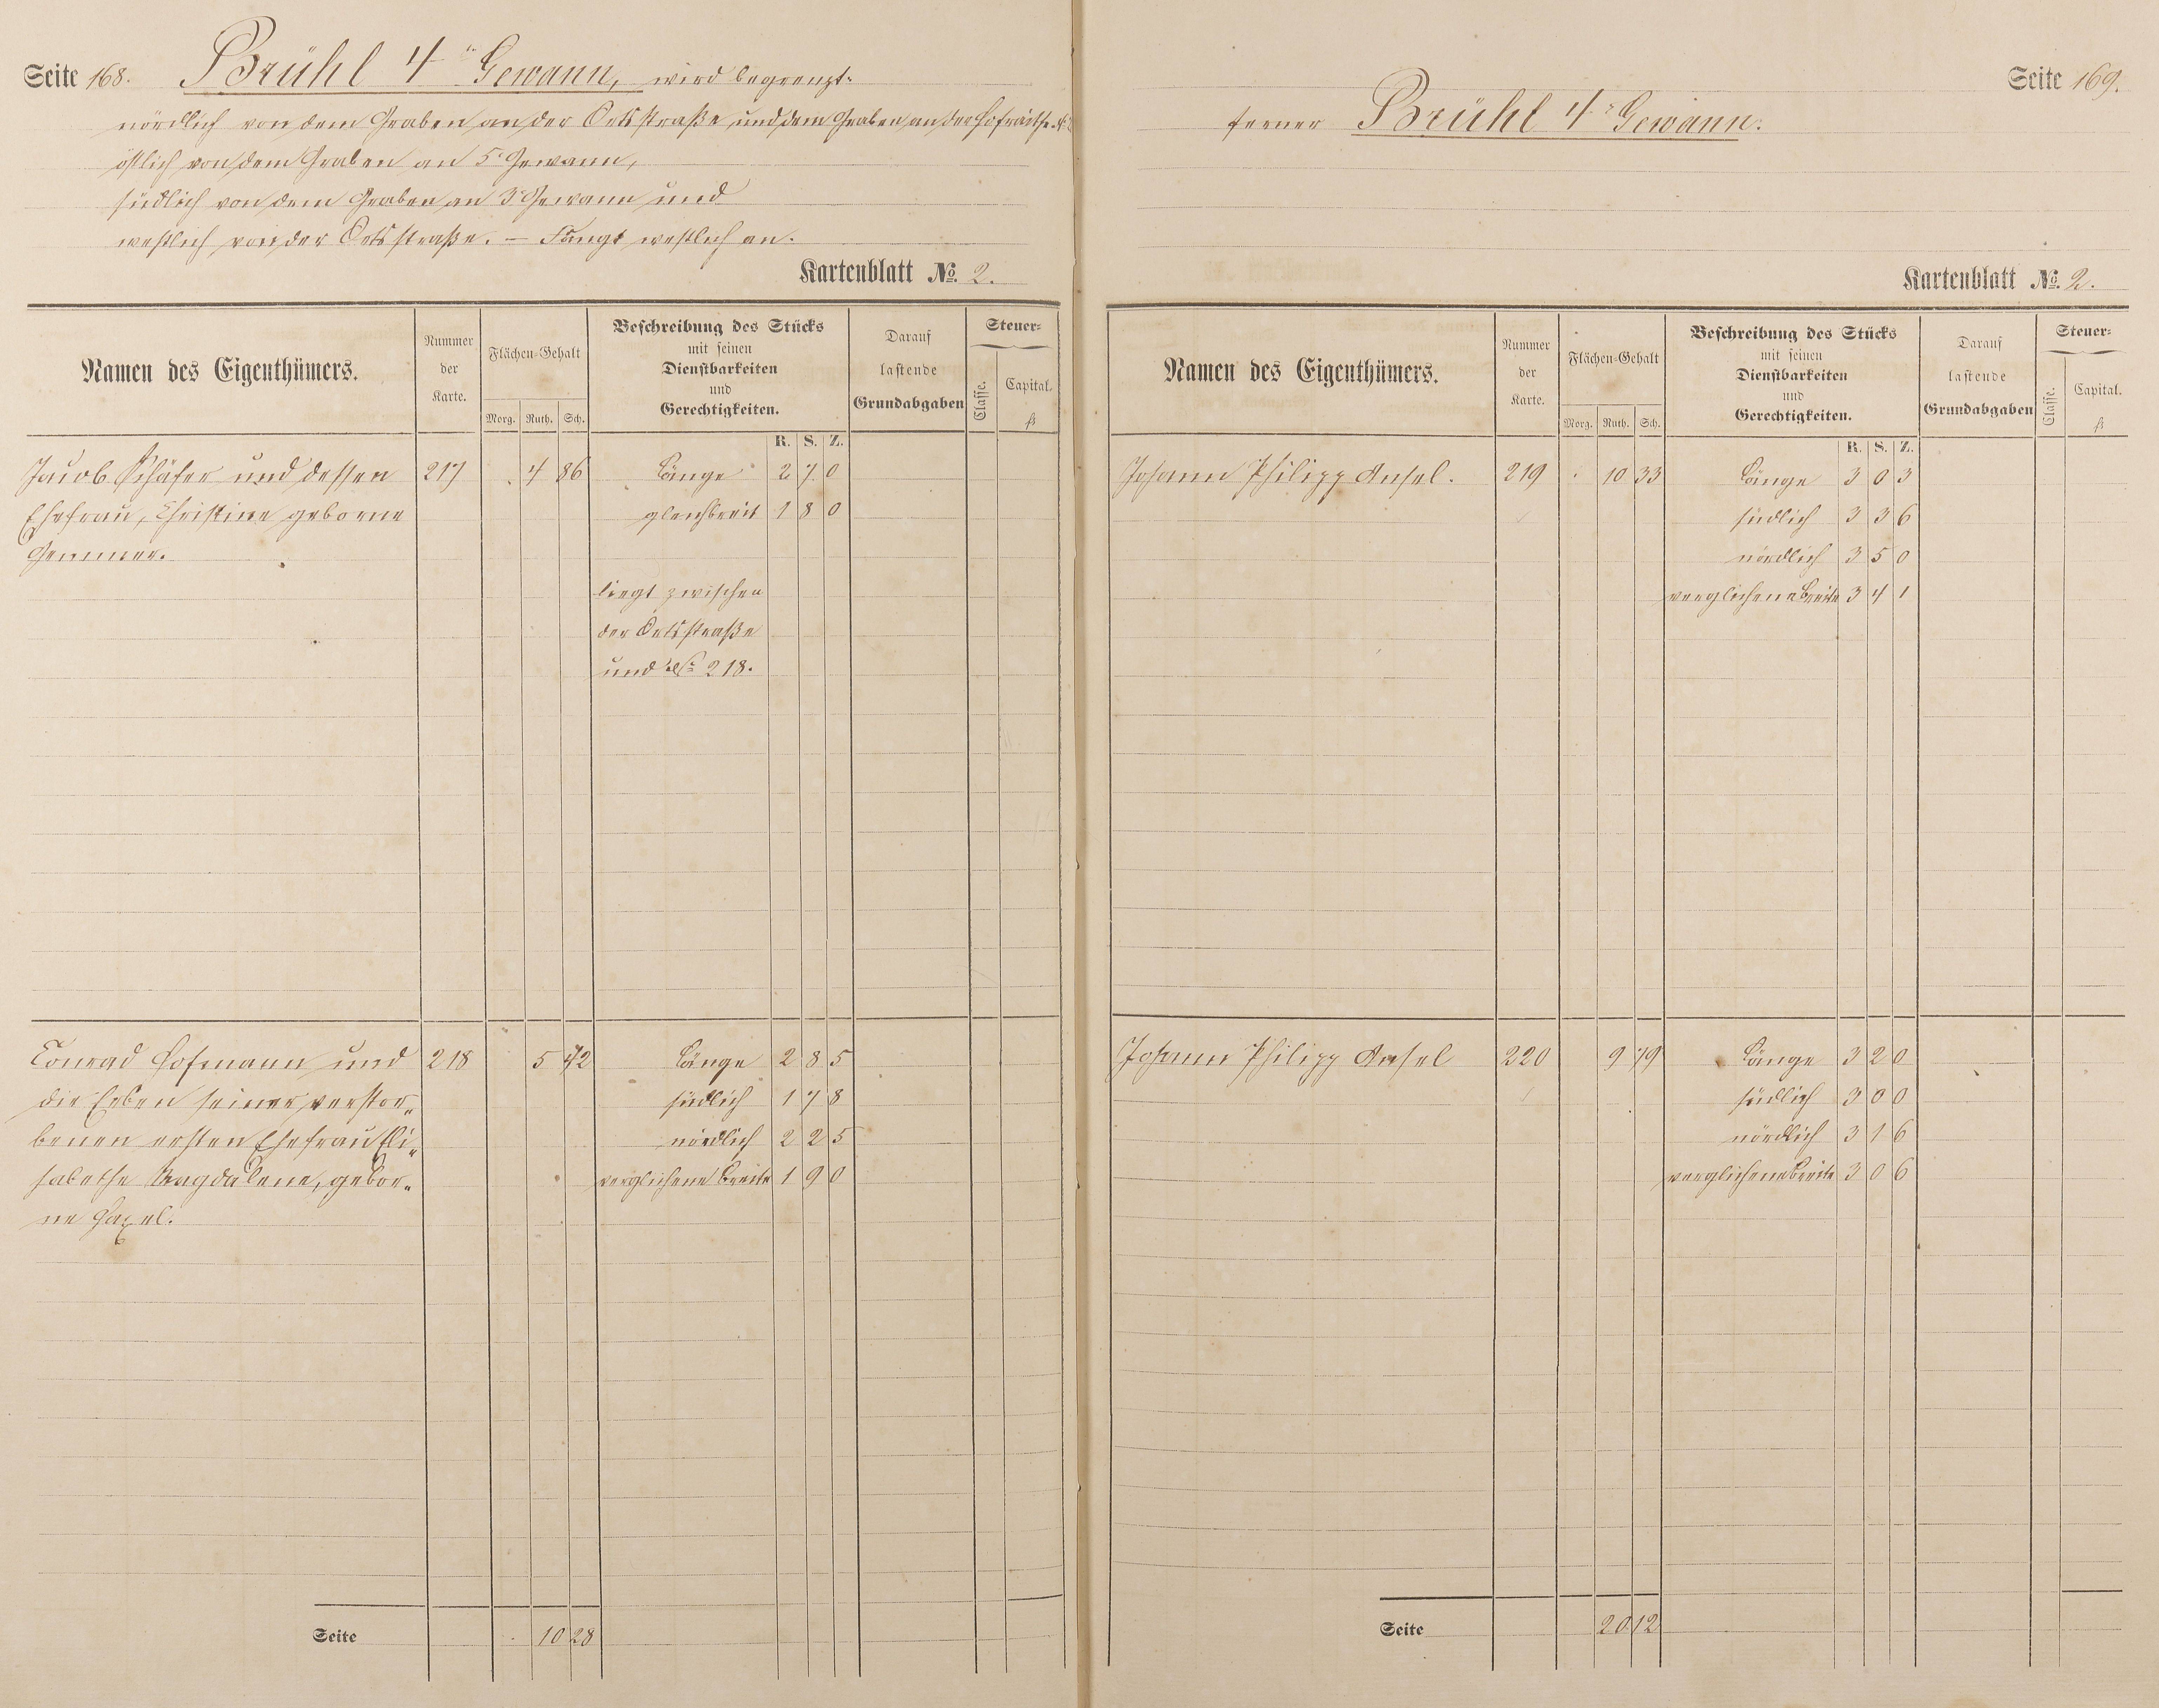 Seite 168. Brühl 4te Gewann, wird begrenzt:
nördlich von dem Graben an der Ortsstraße und dem Graben an der Hofraithe
östlich von dem Graben an 5r Gewann,
südlich von dem Graben an 3r Gewann und
westlich von der Ortsstraße. – Fängt westlich an.
Kartenblatt No. 2.
Namen des Eigenthümers.
Nummer der Karte.
Flächen-Gehalt
Morg. Ruth. Sch.
Beschreibung des Stücks
mit seinen
Dienstbarkeiten
und
Gerechtigkeiten.
Darauf
lastende
Grundabgaben
Steuer-
Classe. Capital.
fl
R. S. Z.
Jacob Schäfer und dessen 217 . 4 86 Länge 2 7 0
Ehefrau, Christine geborne gleichbreit 1 8 0
Gemmer.
liegt zwischen
der Ortsstraße
und No 218.
Conrad Hofmann und 218 5 42 Länge 2 8 5
die Erben seiner verstor- südlich 1 7 8
benen ersten Ehefrau Eli- nördlich 2 2 5
sabethe Magdalene, gebor- verglichene Breite 1 9 0
ne Hazel.
Seite 10 28
Seite 169.
ferner Brühl 4r Gewann.
Kartenblatt No. 2.
Namen des Eigenthümers.
Nummer
der
Karte.
Flächen-Gehalt
Morg. Ruth. Sch.
Beschreibung des Stücks
mit seinen
Dienstbarkeiten
und
Gerechtigkeiten.
Darauf
lastende
Grundabgaben
Steuer-
Classe. Capital.
fl
R. S. Z.
Johann Philipp Ansel. 219 . 10 33 Länge 3 0 3
südlich 3 3 6
nördlich 3 5 0
verglichene Breite 3 4 1
Johann Philipp Ansel 220 9 79 Länge 3 2 0
südlich 3 0 0
nördlich 3 1 6
verglichene Breite 3 0 6
Seite 20 12